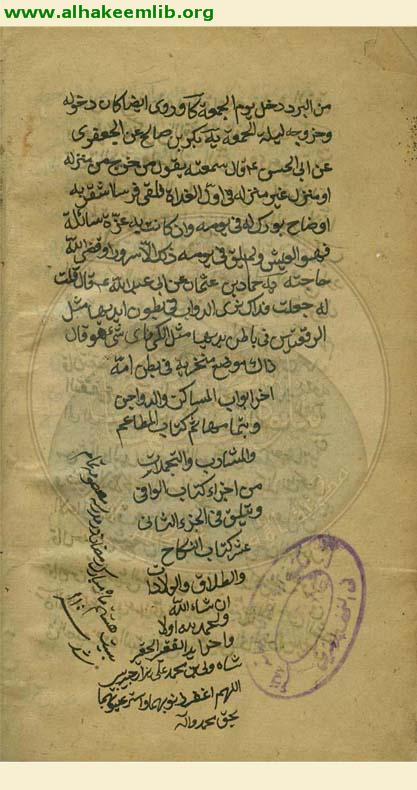 www.alhakeemlib.org
من البرد دخل يوم الجمعة كا وروى ايضا كان دخوله
وخروجه ليلة الجمعة يه بكر بن صالح عن الجعفرى
عن ابى الحسن ع قال سمعته يقول من خرج من منزله
او منزل غير منزله فى اول الغداة فلقى فرسا اشقر به
اوضاح بورك له فى يومه وان كانت به غرة سائلة
فهو العيش ولم يلق فى يومه ذلك الا سرورا وقضى الله
حاجته يه حماد بن عثمان عن ابى عبد الله ع قال قلت
له جعلت فداك نرى الدواب فى بطون ايديها مثل
الرقعتين فى باطن يديها مثل الكى فاى شئ هو قال
ذاك موضع منخريه فى بطن امه
اخر ابواب المساكن والدواجن
وبتمامها تم كتاب المطاعم
والمشارب والتجملات
من اجزاء كتاب الوافى
ويتلوه فى الجزء الثانى
عشر كتاب النكاح
والطلاق والولادات
ان شاء الله
والحمد لله اولا
واخرا بيد الفقير الحقير
شاه ولى بن محمد على
اللهم اغفر ذنوبهما واستر عيوبهما
بحق محمد وآله